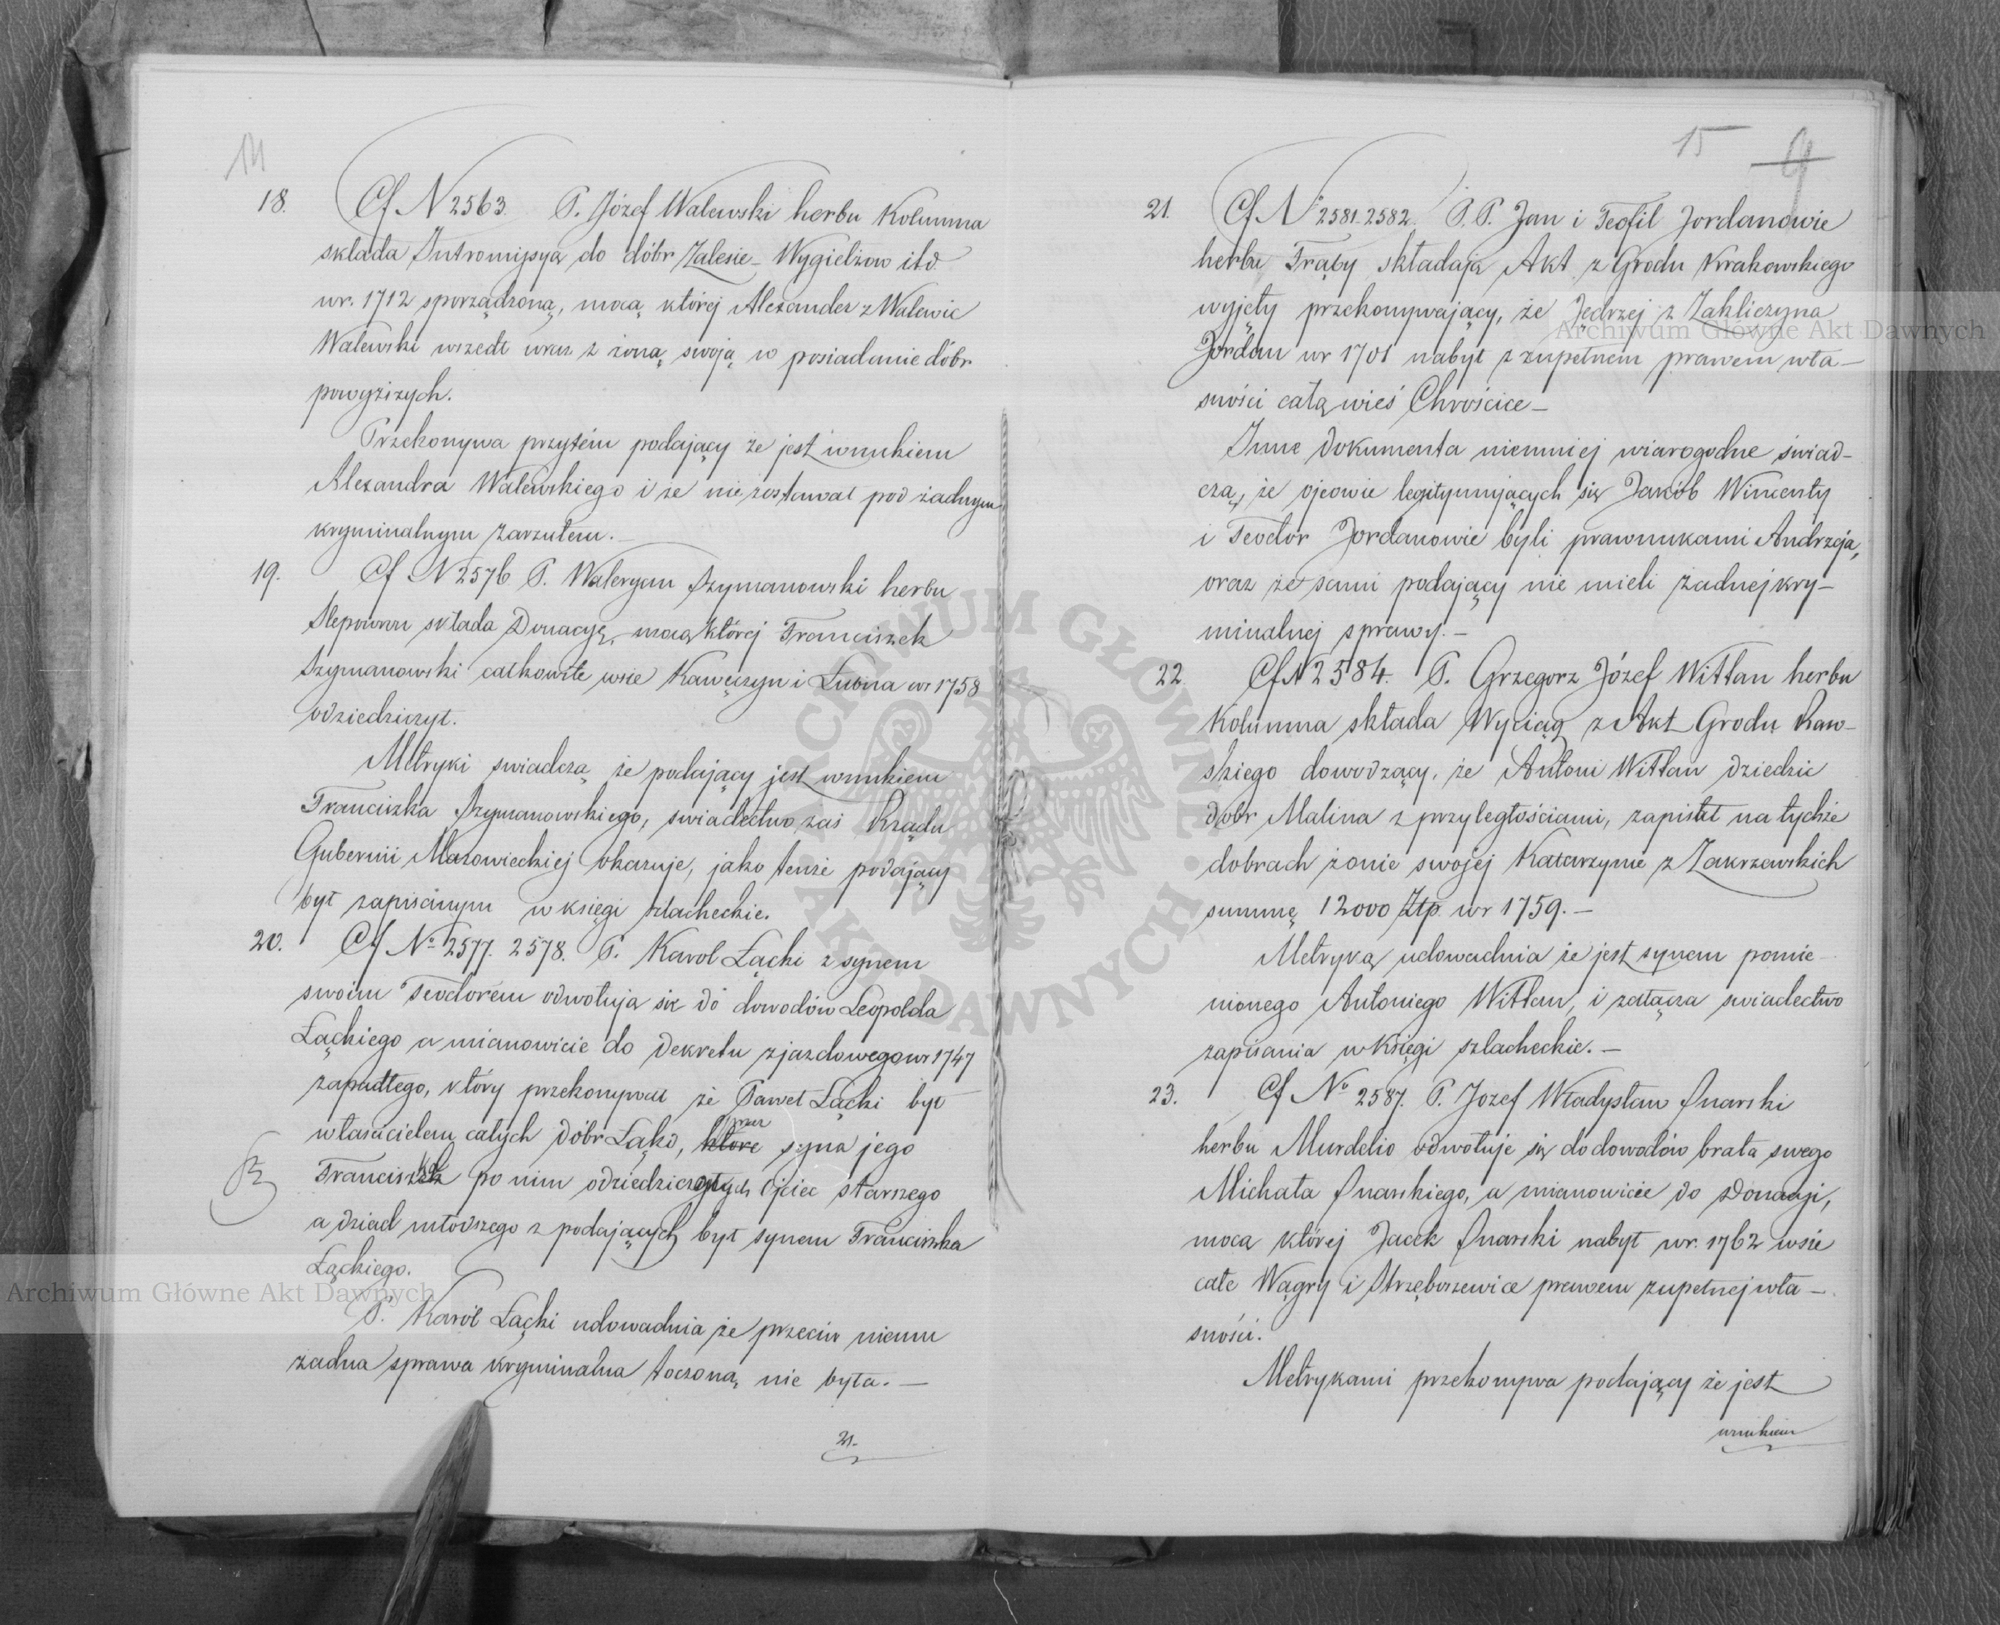 14
18. Cf N 2563. P. Józef Walewski herbu Kolumna
składa Intromissyą do dóbr Zalesie – Wygiełzow itd
wr. 1712 sporządzoną, mocą której Alexander z Walewic
Walewski wszedł wraz z żoną swoją w posiadanie dóbr
powyższych.
Przekonywa przytém podający że jest wnukiem
Alexandra Walewskiego i że nie zostawał pod żadnym
kryminalnym zarzutem. –
19. Cf N 2576 P. Waleryan Szymanowski herbu
Slepowron składa Donacyą mocą której Franciszek
Szymanowski całkowite wsie Kawęczyn i Lubna wr 1758
odziedziczył.
Metryki swiadczą że podający jest wnukiem
Franciszka Szymanowskiego, swiadectwo zaś Rządu
Gubernii Mazowieckiej okazuje, jako tenże podający
był zapisanym w księgi szlacheckie.
20. Cf No 2577. 2578. P. Karol Łącki z synem
swoim Teodorem odwołuja się do dowodów Leopolda
Łąckiego a mianowicie do dekretu zjazdowego wr 1747
zapadłego, który przekonywa że Paweł Łącki był
właścicielem całych dóbr Łąkd, które przez syna jego
Franciszka po nim odziedziczonych Ojciec starszego
a dziad młodszego z podających był synem Franciszka
Łąckiego.
P. Karol Łącki udowadnia że przeciw niemu
żadna sprawa kryminalna toczoną nie była. –
21.
15 9
21. Cf No 2581. 2582. P. P. Jan i Teofil Jordanowie
herbu Trąby składają Akt z Grodu Krakowskiego
wyjęty przekonywający, że Jędrzej z Zakliczyna
Jordan wr 1701 nabył z zupełnem prawem wła–
sności całą wieś Chrościce –
Inne dokumenta niemniej wiarogodne świad–
czą, że ojcowie legitymujących się Jakób Wincenty
i Teodor Jordanowie byli prawnukami Andrzeja,
oraz że sami podający nie mieli żadnej kry–
minalnej sprawy. –
22. Cf N 2584. P. Grzegorz Józef Wittan herbu
Kolumna składa Wyciąg z Akt Grodu Raw–
skiego dowodzący, że Antoni Wittan dziedzic
dobr Malina z przyległościami, zapisał na tychże
dobrach żonie swojej Katarzynie z Zakrzewskich
summę 12000 Ztp. wr 1759. –
Metryką udowadnia że jest synem pomie–
nionego Antoniego Wittan, i załącza swiadectwo
zapisania w księgi szlacheckie. –
23. Cf No 2587. P. Jozef Władysław Snarski
herbu Murdelio odwołuje się do dowodów brata swego
Michała Snarskiego, a mianowicie do Donacyi,
mocą której Jacek Snarski nabył wr. 1762 wsie
całe Wągry i Strzęboszewice prawem zupełnej wła–
sności.
Metrykami przekonywa podający że jest
wnukiem
Archiwum Główne Akt Dawnych
Archiwum Główne Akt Dawnych
ARCHIWUM GŁÓWNE AKT DAWNYCH